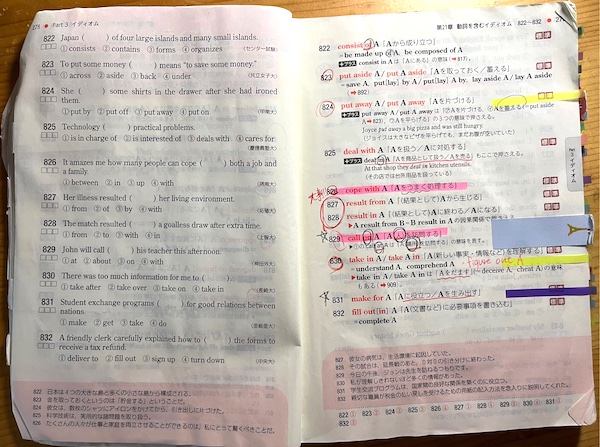 278 ● Part 3 イディオム
822 Japan ( ) of four large islands and many small islands.
① consists ② contains ③ forms ④ organizes (センター試験)
823 To put some money ( ) means "to save some money."
① across ② aside ③ back ④ under (共立女子大)
824 She ( ) some shirts in the drawer after she had ironed
them.
① put by ② put off ③ put away ④ put on (甲南大)
825 Technology ( ) practical problems.
① is in charge of ② is interested of ③ deals with ④ cares for
826 It amazes me how many people can cope ( ) both a job and
a family.
① between ② in ③ up ④ with
827 Her illness resulted ( ) her living environment.
① from ② of ③ by ④ with
828 The match resulted ( ) a goalless draw after extra time.
① from ② to ③ with ④ in (上智大)
829 John will call ( ) his teacher this afternoon.
① at ② about ③ on ④ with
830 There was too much information for me to ( ).
① take after ② take over ③ take on ④ take in
831 Student exchange programs ( ) for good relations between
nations.
① make ② get ③ take ④ do
832 A friendly clerk carefully explained how to ( ) the forms to
receive a tax refund.
① deliver to ② fill out ③ sign up ④ turn down (中央大)
822 日本は4つの大きな島と多くの小さな島から構成される。
823 金を取っておくというのは「貯金する」ということだ。
824 彼女は、数枚のシャツにアイロンをかけてから、引き出しに片づけた。
825 科学技術は、実用的な諸問題を取り扱う。
826 たくさんの人々が仕事と家庭を両立させることができるのは、私にとって驚くべきことだ。
第21章 動詞を含むイディオム 822〜832 ●
822 consist of A「Aから成り立つ」
= be made up of A, be composed of A
+プラス consist in A は「Aにある」の意味
823 put aside A / put A aside「Aを取っておく／蓄える」
= save A, put[lay] by A / put[lay] A by, lay aside A / lay A aside
(➡892)
824 put away A / put A away「Aを片づける」
Joyce put away a big pizza and was still hungry.
(ジョイスは大きなピザを平らげても、まだお腹が空いていた)
825 deal with A「Aを扱う／Aに対処する」
+プラス deal in A「Aを商品として扱う／Aを売る」もここで押さえる。
At that shop they deal in kitchen utensils.
(その店では台所用品を扱っている)
826 cope with A「Aをうまく処理する」
827 result from A「(結果として)Aから生じる」
828 result in A「(結果として)Aに終わる／Aになる」
829 call on A「A(人)を訪問する」
830 take in A / take A in「A(新しい事実・情報など)を理解する」
= understand A, comprehend A
▶ take in A / take A in は「Aをだます」(= deceive A, cheat A)の意味
もある(➡909)。
831 make for A「Aに役立つ／Aを生み出す」
832 fill out[in] A「A(文書など)に必要事項を書き込む」
= complete A
Part 3 イディオム
827 彼女の病気は、生活環境に起因していた。
828 その試合は、延長戦のあと、0対0の引き分けに終わった。
829 今日の午後、ジョンは先生を訪ねるつもりです。
830 私が理解しきれないほど多くの情報があった。
831 学生交流プログラムは、国家間の良好な関係を築くのに役立つ。
832 親切な職員が税金の払い戻しを受けるための用紙の記入方法を念入りに説明してくれた。
822 ① 823 ② 824 ③ 825 ③ 826 ④ 827 ① 828 ④ 829 ③
830 ④ 831 ① 832 ②